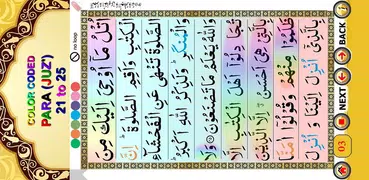 COLOR CODED
PARA (JUZ')
21 to 25
no loop
اُتْلُ مَآ اُوْحِیَ اِلَیْكَ مِنَ
الْكِتٰبِ وَاَقِمِ الصَّلٰوةَ ؕ اِنَّ
الصَّلٰوةَ تَنْهٰى عَنِ الْفَحْشَآءِ
وَالْمُنْكَرِ ؕ وَلَذِكْرُ اللّٰهِ اَكْبَرُ ؕ وَ
اللّٰهُ یَعْلَمُ مَا تَصْنَعُوْنَ ۝ وَلَا
تُجَادِلُوْۤا اَهْلَ الْكِتٰبِ اِلَّا
بِالَّتِیْ هِیَ اَحْسَنُ ۖۗ اِلَّا الَّذِیْنَ
ظَلَمُوْا مِنْهُمْ وَقُوْلُوْۤا اٰمَنَّا
بِالَّذِیْۤ اُنْزِلَ اِلَیْنَا وَاُنْزِلَ
03
NEXT
BACK